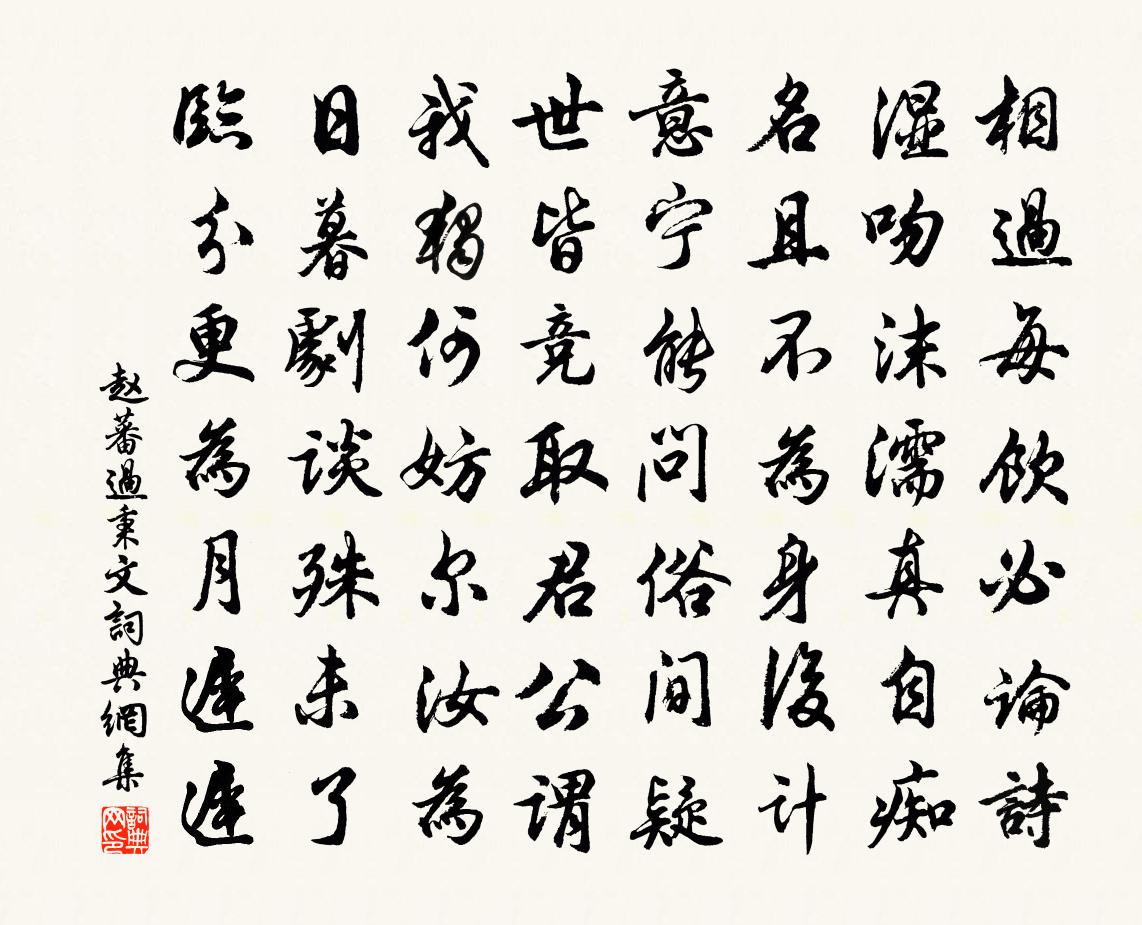 相過每飲必論詩
濕吻沫濡真自痴
名且不為身後计
意宁能问俗间疑
世皆竞取君公謂
我獨何妨尔汝為
日暮劇談殊未了
臨分更為月遲遲
赵蕃過秉文詞典網集
詞典网印